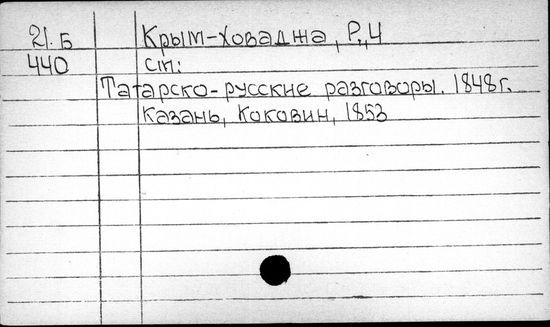 21.Б Крым-Ховаджа, Р.,Ч
440 сm:
Татарско-русские разговоры. 1848г.
Казань, Коковин, 1853